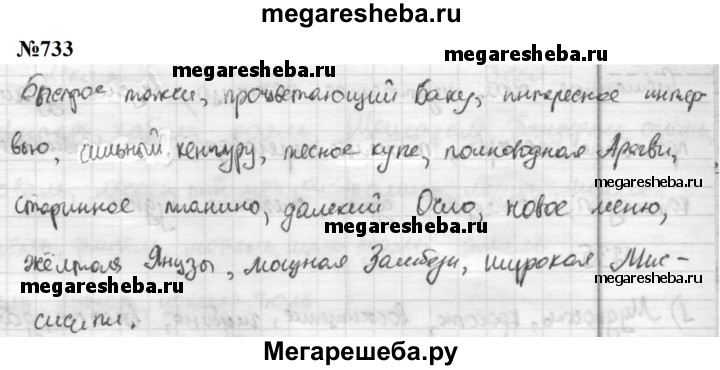 megaresheba.ru
№733
megaresheba.ru
megaresheba.ru
Быстрое такси, процветающий Баку, интересное интер-
вью, сильный кенгуру, тесное купе, полноводная Арагви,
megaresheba.ru
старинное пианино, далекий Осло, новое меню,
megaresheba.ru
жёлтая Янцзы, мощная Замбези, широкая Мис-
megaresheba.ru
megaresheba.ru
сисипи.
Мегарешеба.ру